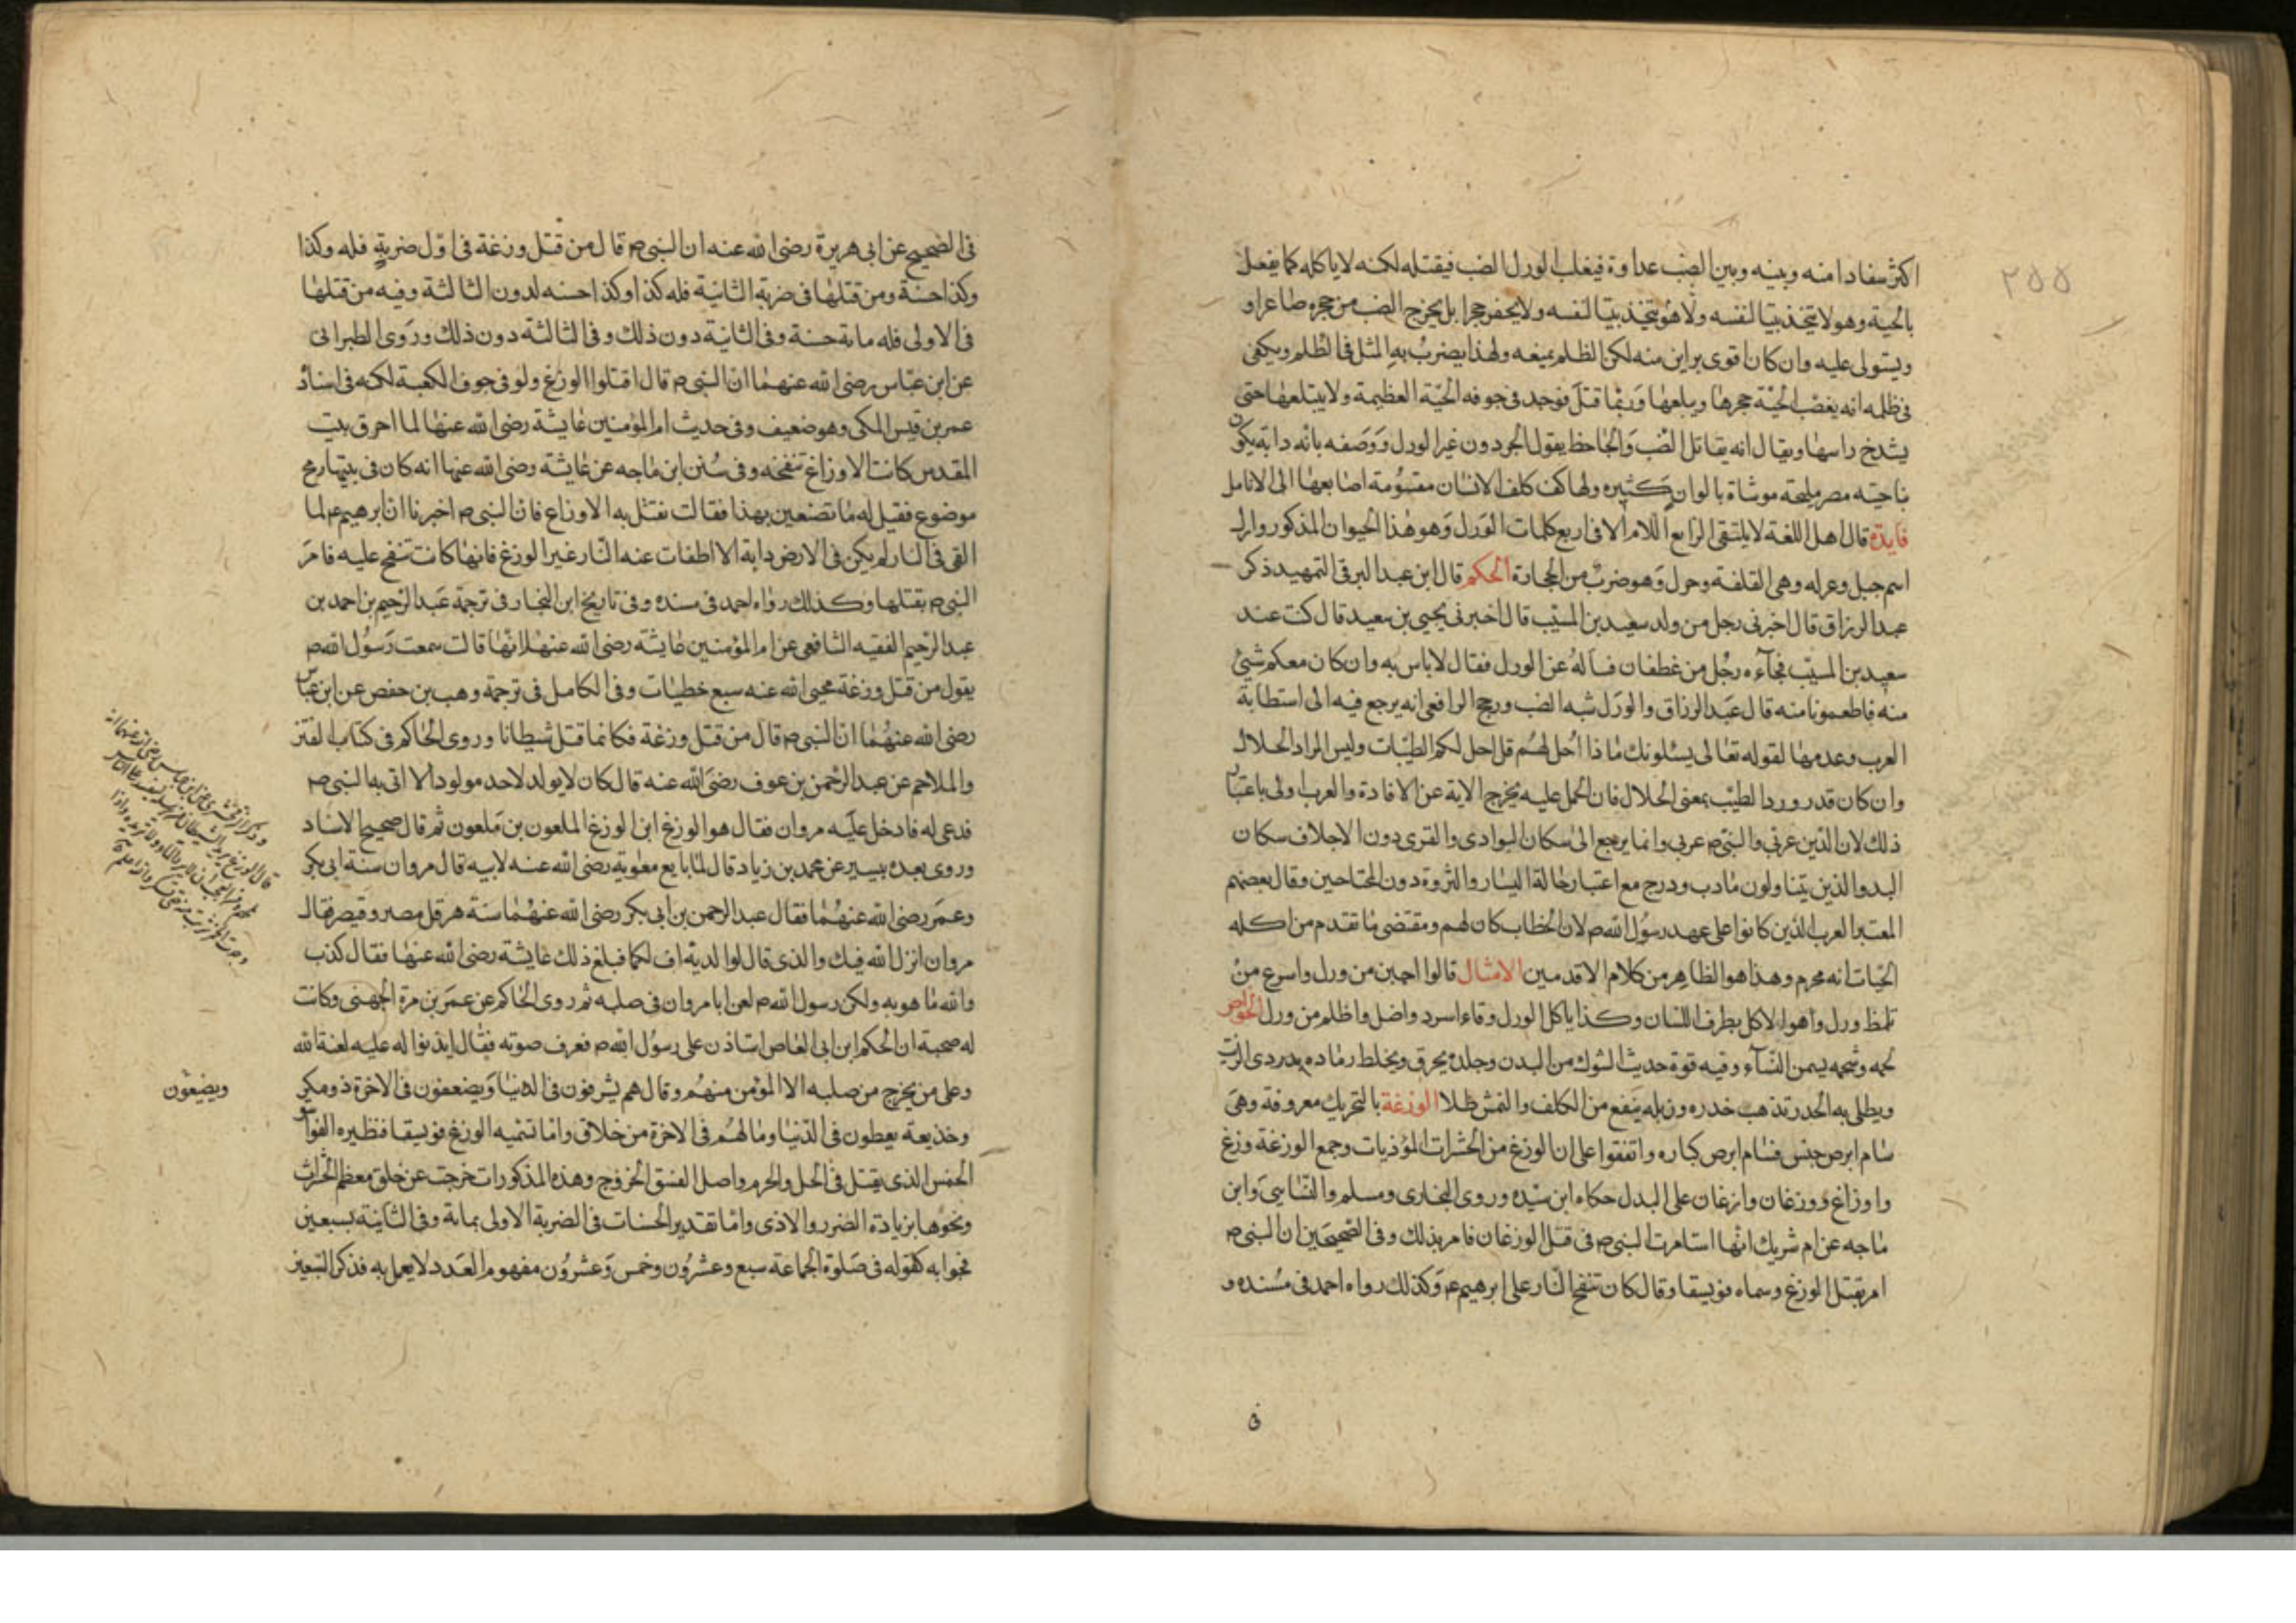 ٢٥٥
اكثر سفادا منه وبينه وبين الضب عداوة فيغلب الورل الضب فيقتله لكنه لا ياكله كما يفعل
بالحية وهو لا يتخذ بيتا لنفسه ولا هو يتخذ بيتا لنفسه ولا يحفر حجرا بل يخرج الضب من حجره صاغرا و
ويستولى عليه وان كان اقوى براثن منه لكن الظلم يمنعه ولهذا يضرب به المثل فى الظلم ويكفى
فى ظلمه انه يغصب الحية حجرها ويبلعها وربما قتل فوجد فى جوفه الحية العظيمة ولا يبتلعها حتى
يشدخ راسها ويقال انه يقاتل الضب والجاحظ يقول الحردون غير الورل ووصفه بانه دابة يكون
بناحية مصر مليحة موشاة بالوان كثيره ولها كف كلف الانسان مقسومة اصابعها الى الانامل
فايدة قال اهل اللغة لا يلتقى الراء مع اللام الا فى اربع كلمات الورل وهو هذا الحيوان المذكور وارل
اسم جبل وغرله وهى القلفة وجرل وهو ضرب من الحجارة الحكم قال ابن عبد البر فى التمهيد ذكر
عبد الرزاق قال اخبرنى رجل من ولد سعيد بن المسيب قال اخبرنى يحيى بن سعيد قال كنت عند
سعيد بن المسيب فجآءه رجل من غطفان فساله عن الورل فقال لا باس به وان كان معكم شئ
منه فاطعمونا منه قال عبد الرزاق والورل شبه الضب ورجح الرافعى انه يرجع فيه الى استطابة
العرب وعدمها لقوله تعالى يسئلونك ماذا احل لهم قل احل لكم الطيبات وليس المراد الحلال
وان كان قد ورد الطيب بمعنى الحلال فان الحمل عليه يخرج الاية عن الافادة والعرب اولى باعتبار
ذلك لان الدين عربى والنبى ص عربى وانما يرجع الى سكان البوادى والقرى دون الاجلاف سكان
البدو الذين يتناولون ما دب ودرج مع اعتبار حالة اليسار والثروة دون المحتاجين وقال بعضهم
المعتبر العرب الذين كانوا على عهد رسول الله ص لان الخطاب كان لهم ومقتضى ما تقدم من اكله
الحيات انه محرم وهذا هو الظاهر من كلام الاقدمين الامثال قالوا اجبن من ورل واسرع من
تلمظ ورل وهو الاكل بطرف اللسان وكذا ياكل الورل وقاء اسرد واضل واظلم من ورل الخواص
لحمه وشحمه يسمن النسآء وفيه قوة جذب الشوك من البدن وجلده يحرق ويخلط رماده بدردى الزيت
ويطلى به الخدر تذهب خدره وزبله ينفع من الكلف والنمش طلا الوزغة بالتحريك معروفة وهى
سام ابرص جنس فسام ابرص كباره واتفقوا على ان الوزغ من الحشرات المؤذيات وجمع الوزغة وزغ
واوزاغ ووزغان وازغان على البدل حكاه ابن سيده وروى البخارى ومسلم والنساىى وابن
ماجه عن ام شريك انها استامرت النبى ص فى قتل الوزغان فامر بذلك وفى الصحيحين ان النبى ص
امر بقتل الوزغ وسماه فويسقا وقال كان تنفخ النار على ابرهيم ع وكذلك رواه احمد فى مسنده و
ف
فى الصحيح عن ابى هريرة رضى الله عنه ان النبى ص قال من قتل وزغة فى اول ضربة فله وكذا
وكذا حسنة ومن قتلها فى ضربة الثانية فله كذا وكذا حسنه لدون الثالثة وفيه من قتلها
فى الاولى فله ماية حسنة وفى الثانية دون ذلك وفى الثالثة دون ذلك وروى الطبرانى
عن ابن عباس رضى الله عنهما ان النبى ص قال اقتلوا الوزغ ولو فى جوف الكعبة لكنه فى اسناد
عمر بن قيس المكى وهو ضعيف وفى حديث ام المؤمنين عايشة رضى الله عنها لما احرق بيت
المقدس كانت الاوزاغ تنفخه وفى سنن ابن ماجه عن عايشة رضى الله عنها انه كان فى بيتها رمح
موضوع فقيل له ما تصنعين بهذا فقالت نقتل به الاوزاغ فان النبى ص اخبرنا ان ابرهيم ع لما
القى فى النار لم يكن فى الارض دابة الا اطفات عنه النار غير الوزغ فانها كانت تنفخ عليه فامر
النبى ص بقتلها وكذلك رواه احمد فى مسنده وفى تاريخ ابن النجار فى ترجمة عبد الرحيم بن احمد بن
عبد الرحيم الفقيه الشافعى عن ام المؤمنين عايشة رضى الله عنها انها قالت سمعت رسول الله ص
يقول من قتل وزغة محيى الله عنه سبع خطيئات وفى الكامل فى ترجمة وهب بن حفص عن ابن عباس
رضى الله عنهما ان النبى ص قال من قتل وزغة فكانما قتل شيطانا وروى الحاكم فى كتاب الفتن
والملاحم عن عبد الرحمن بن عوف رضى الله عنه قال كان لا يولد لاحد مولود الا اتى به النبى ص
فدعى له فادخل عليه مروان فقال هو الوزغ ابن الوزغ الملعون بن ملعون ثم قال صحيح الاسناد
وروى بعده بيسير عن محمد بن زياد قال لما بايع معوية رضى الله عنه لابيه قال مروان سنة ابى بكر
وعمر رضى الله عنهما فقال عبد الرحمن بن ابى بكر رضى الله عنهما سنة هرقل مصر وقيصر فقال
مروان انزل الله فيك والذى قال لوالديه اف لكما فبلغ ذلك عايشة رضى الله عنها فقال كذب
والله ما هو به ولكن رسول الله ص لعن ابا مروان فى صلبه ثم روى الحاكم عن عمر بن مرة الجهنى وكانت
له صحبة ان الحكم ابن ابى العاص استاذن على رسول الله ص فعرف صوته فقال ايذنوا له عليه لعنة الله
وعلى من يخرج من صلبه الا المؤمن منهم وقال هم يشرفون فى الدنيا ويضعفون فى الاخرة ذو مكر
وخذيعة يعطون فى الدنيا وما لهم فى الاخرة من خلاق واما تسميه الوزغ فويسقا فنظيره الفواسق
الخمس الذى يقتل فى الحل والحرم واصل الفسق الخروج وهذه المذكورات خرجت عن خلق معظم الحشرات
ونحوها بزيادة الضرر والاذى واما تقدير الحسنات فى الضربة الاولى بماية وفى الثانية بسبعين
فجوابه كقوله فى صلوة الجماعة سبع وعشرون وخمس وعشرون مفهوم العدد لا يعمل به فذكر السبعين
ويضيعون